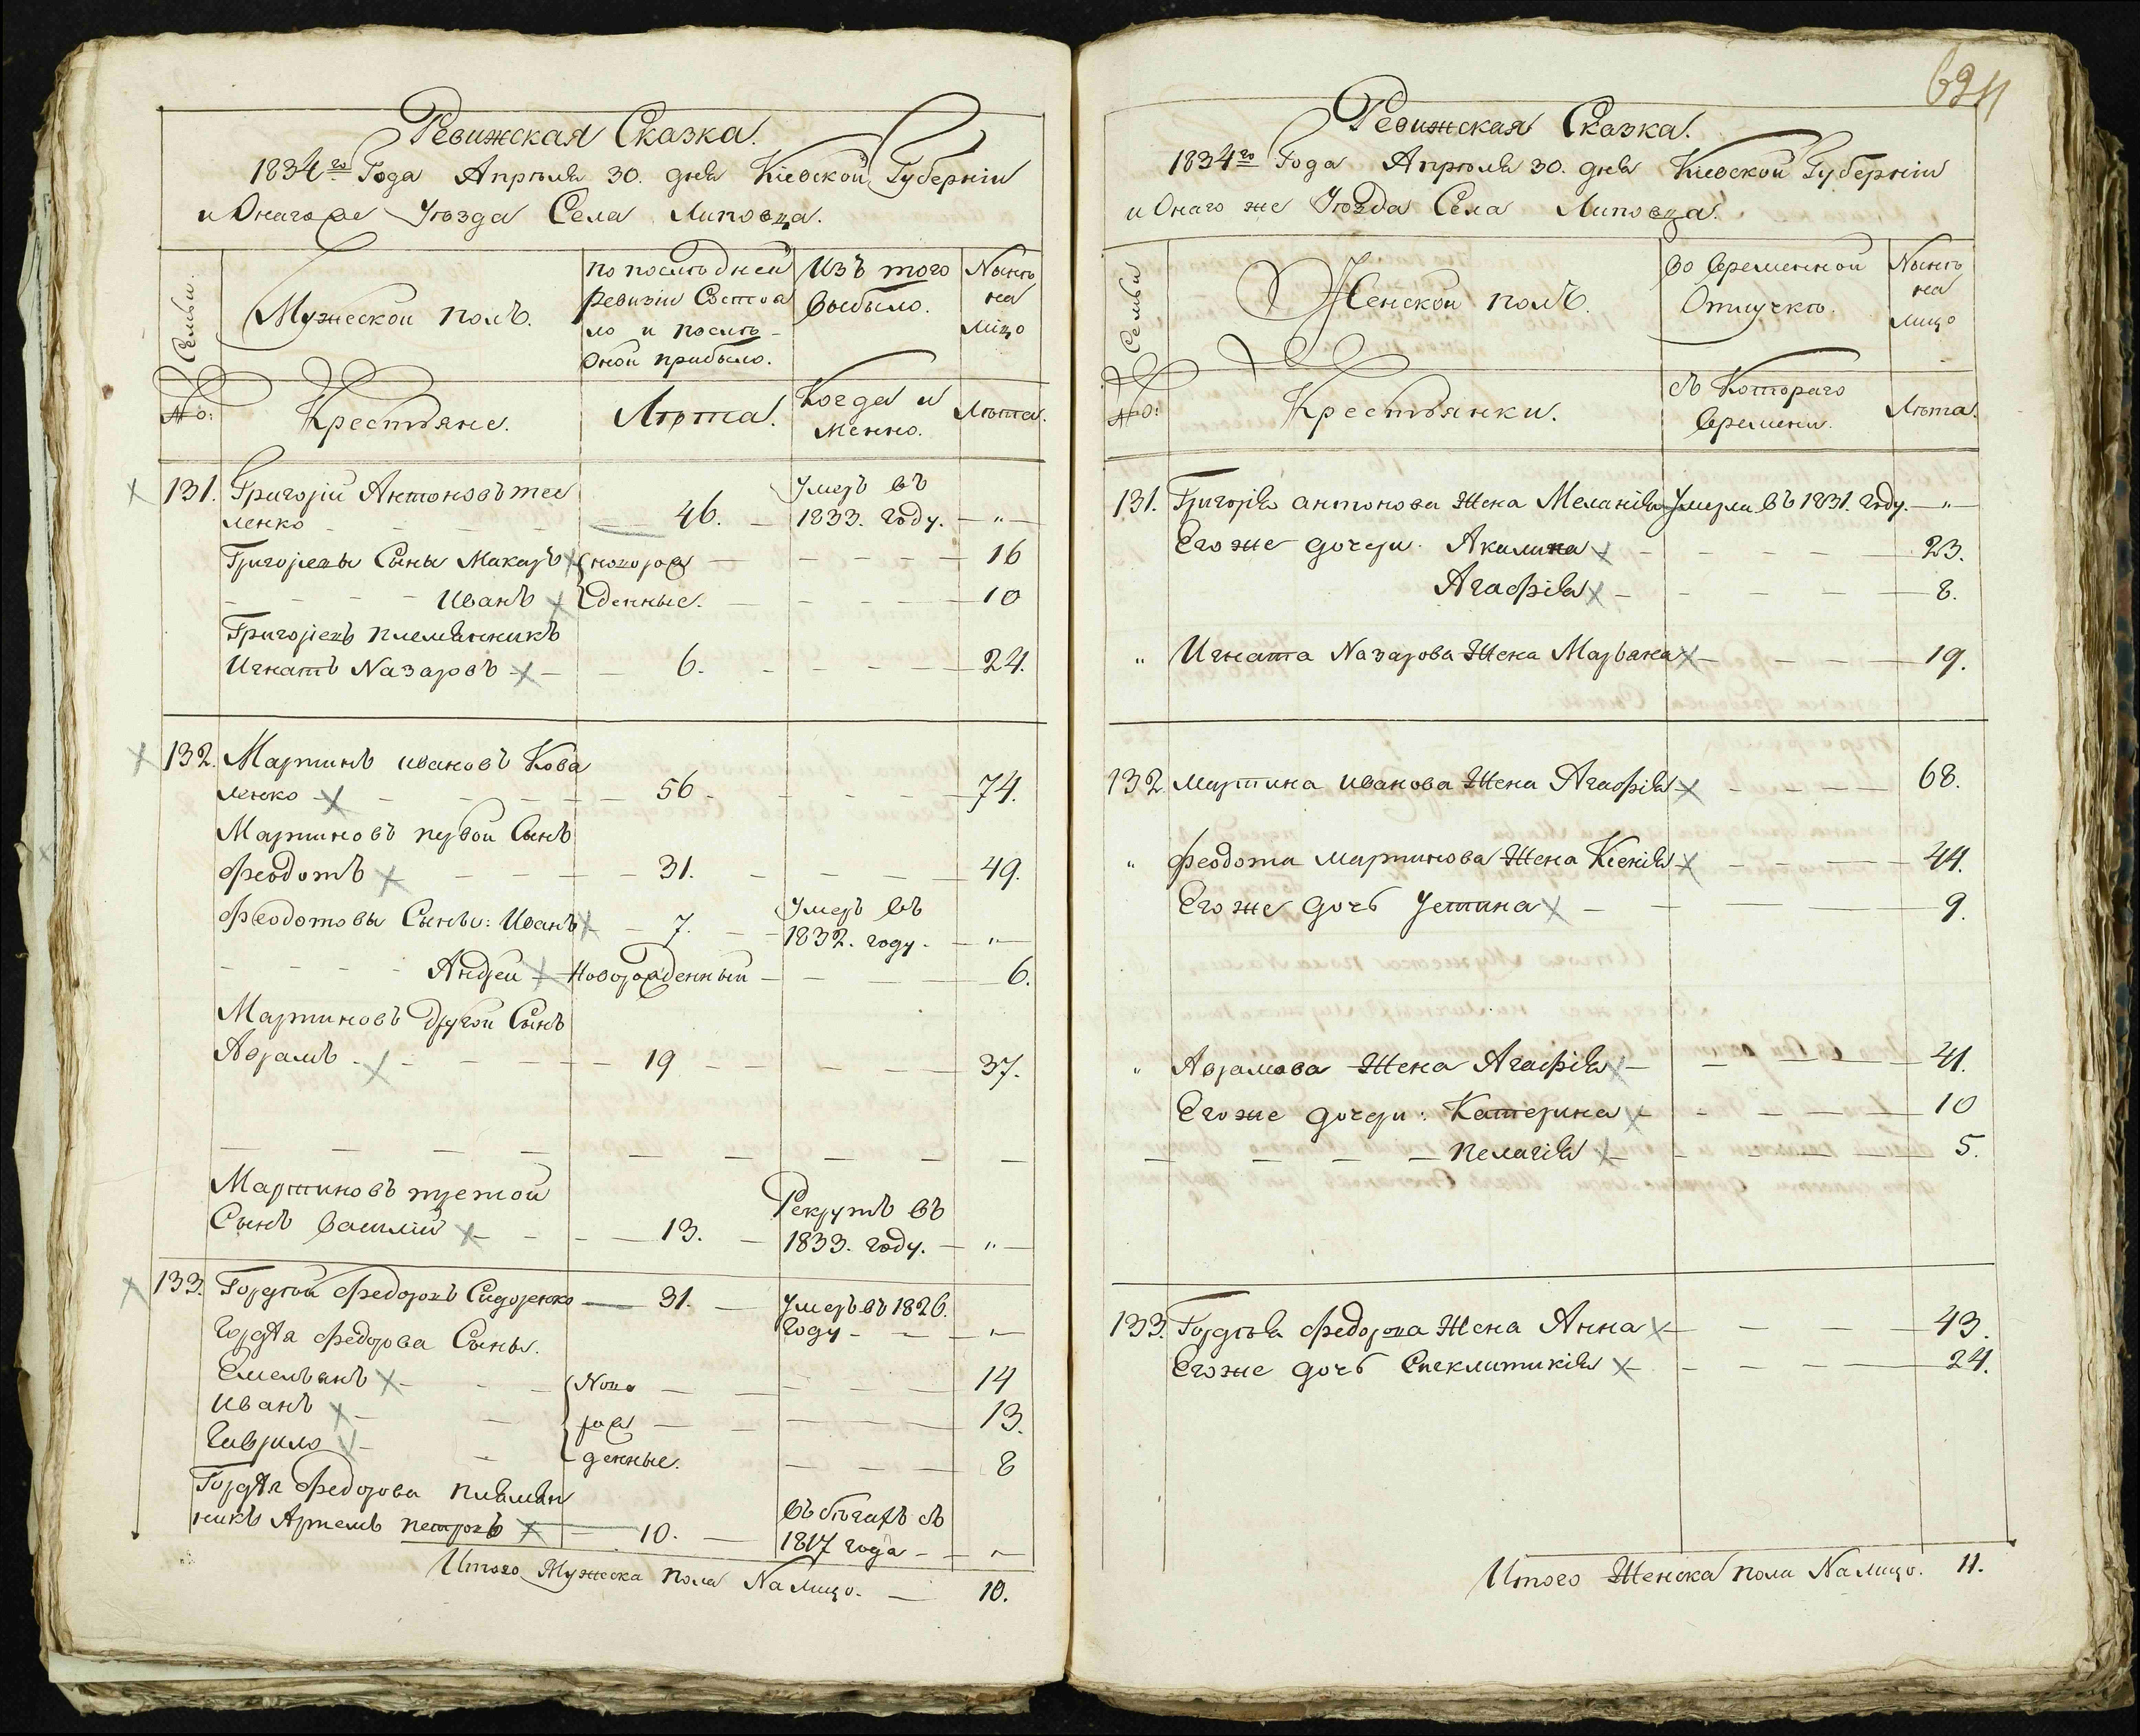 Ревижская Сказка.
1834го Года Апреля 30. дня Кіевской Губерніи
и Онаго же Уезда Села Липовца.
Семьи
Мужеской полъ.
по последней
ревизіи Состоя
ло и после
оной прибыло.
Изъ того
выбыло.
Ныне
на
лицо
№:
Крестьяне.
Лѣта.
Когда и
менно.
Лѣта.
131. Григорій Антоновъ
ленко 46. Умеръ въ 1833. году. "
Григорьевы Сыны Макаръ новорож 16
Иванъ денные. 10
Григорьевъ племянникъ
Игнатъ Назаровъ 6. 24.
132. Мартинъ ивановъ Кова
ленко 56 74.
Мартиновъ первой Сынъ
Феодотъ 31. 49.
Феодотовы Сыны: Иванъ 7. Умеръ въ 1832. году. "
Андрей Новорожденный 6.
Мартиновъ другой Сынъ
Аврамъ 19 37.
Мартиновъ третой
Сынъ Василій 13. Рекрутъ въ 1833. году. "
133. Гордѣй Федоровъ Сидоренко 31. Умеръ въ 1826. году "
Гордѣя Федорова Сыны.
Емельянъ Ново 14
Иванъ рож 13.
Гаврило денные. 8
Гордѣя Федорова племян
никъ Артемъ Петровъ 10. въ бѣгахъ съ 1817 года "
Итого Мужеска пола На лицо. 10.
694
Ревижская Сказка.
1834го Года Апреля 30. дня Кіевской Губерніи
и Онаго же Уезда Села Липовца.
Семьи
Женской полъ.
Во временной
Отлучкѣ.
Нынѣ
на
лицо
№:
Крестьянки.
съ Котораго
времени.
Лѣта.
131. Григорія антонова Жена Меланія Умерла въ 1831. году. "
Его же дочери. Акилина 23.
Агафія 8.
" Игната Назарова Жена Марьяна 19.
132 мартина иванова Жена Агафія 68.
" феодота мартинова Жена Ксенія 44.
Его же дочь Устина 9.
" Аврамова Жена Агафія 41.
Его же дочери: Катерина 10
Пелагія 5.
133. Гордѣя Федорова Жена Анна 43.
Его же дочь Синклитикія 24.
Итого Женска пола На лицо. 11.